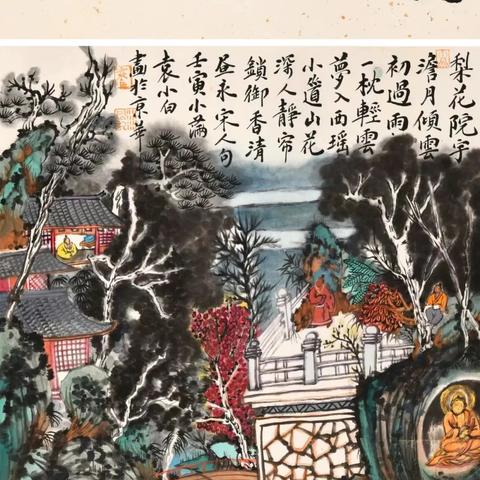 梨花院宇
澹月傾雲
初過雨
一枕輕雲
夢入西瑶
小道山花
深人靜帘
鎖御香清
昼永宋人句
壬寅小滿
袁小白
畫於京華